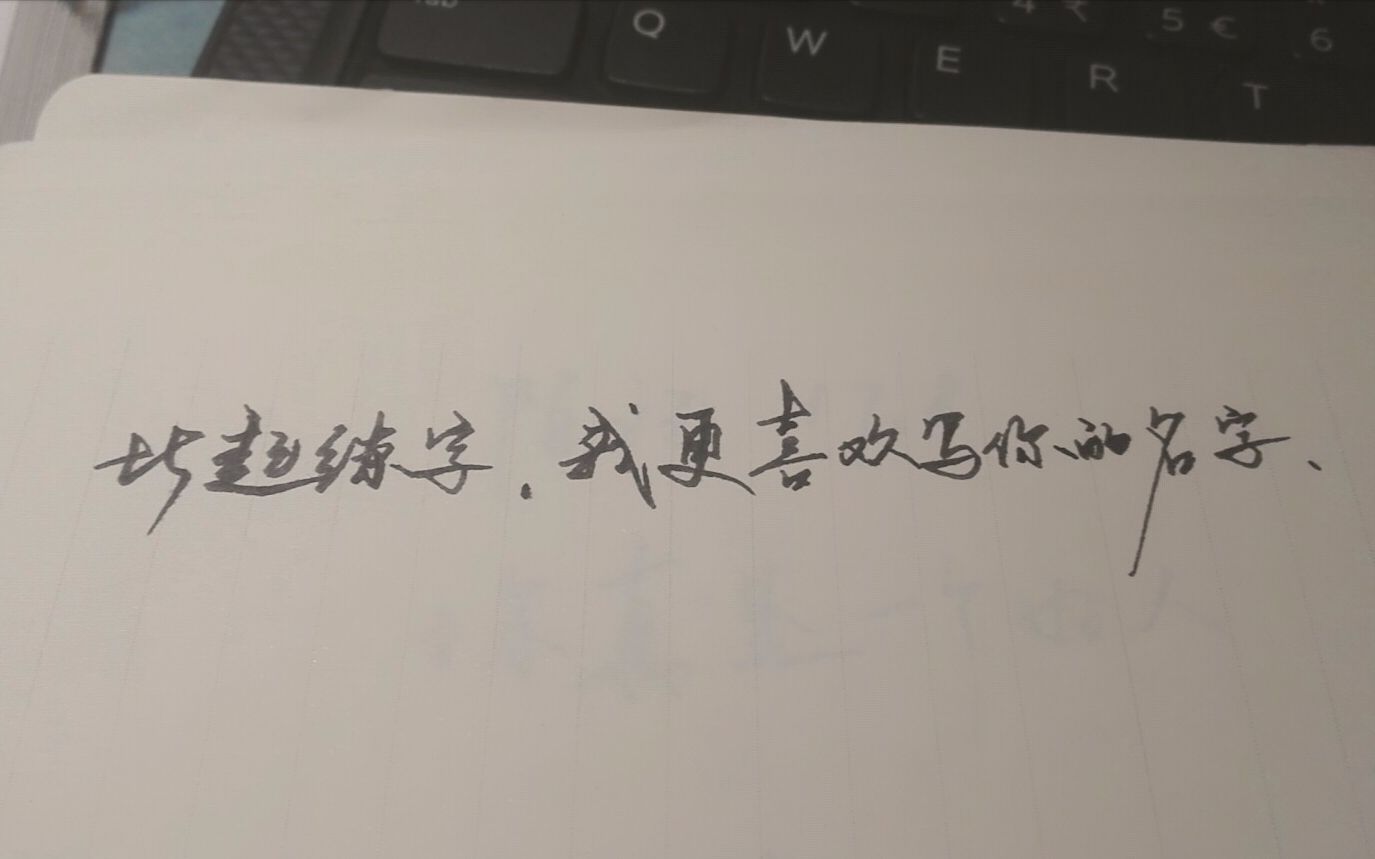 Tab Q W E R T
4 ₹ 5 € 6
比起练字，我更喜欢写你的名字、